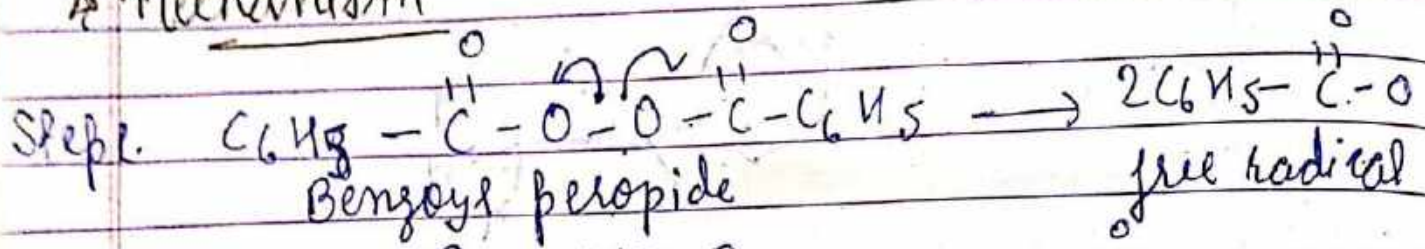 Mechanism
O O O
Step 1. C6H5 - C - O - O - C - C6H5 → 2C6H5 - C - O
Benzoyl peroxide free radical